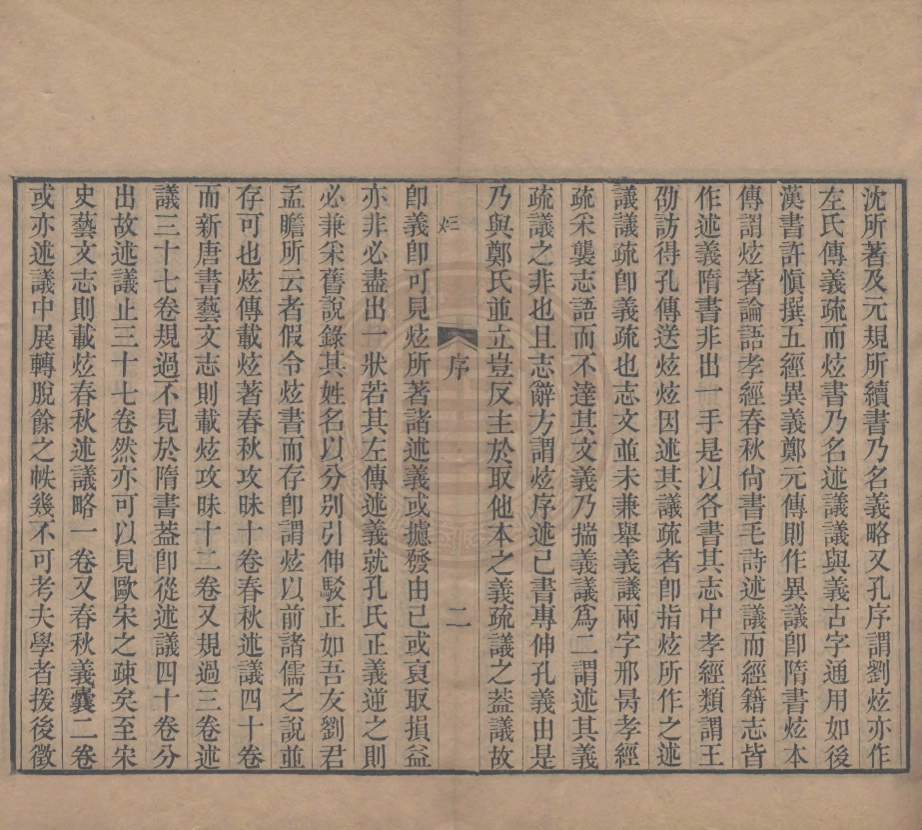 沈所著及元規所續書乃名義略又孔序謂劉炫亦作
左氏傳義疏而炫書乃名述議議與義古字通用如後
漢書許愼撰五經異義鄭元傳則作異議卽隋書炫本
傳謂炫著論語孝經春秋尙書毛詩述議而經籍志皆
作述義隋書非出一手是以各書其志中孝經類謂王
劭訪得孔傳送炫炫因述其議疏者卽指炫所作之述
議議疏卽義疏也志文並未兼舉義議兩字邢昺孝經
疏采襲志語而不達其文義乃揣義議爲二謂述其義
疏議之非也且志辭方謂炫序述己書專伸孔義由是
乃與鄭氏並立豈反主於取他本之義疏議之葢議故
序
二
卽義卽可見炫所著諸述義或攄發由己或裒取損益
亦非必盡出一狀若其左傳述義就孔氏正義逆之則
必兼采舊說錄其姓名以分别引伸駁正如吾友劉君
孟瞻所云者假令炫書而存卽謂炫以前諸儒之說並
存可也炫傳載炫著春秋攻昧十卷春秋述議四十卷
而新唐書藝文志則載炫攻昧十二卷又規過三卷述
議三十七卷規過不見於隋書葢卽從述議四十卷分
出故述議止三十七卷然亦可以見歐宋之疎矣至宋
史藝文志則載炫春秋述議略一卷又春秋義囊二卷
或亦述議中展轉脫餘之帙幾不可考夫學者援後徵